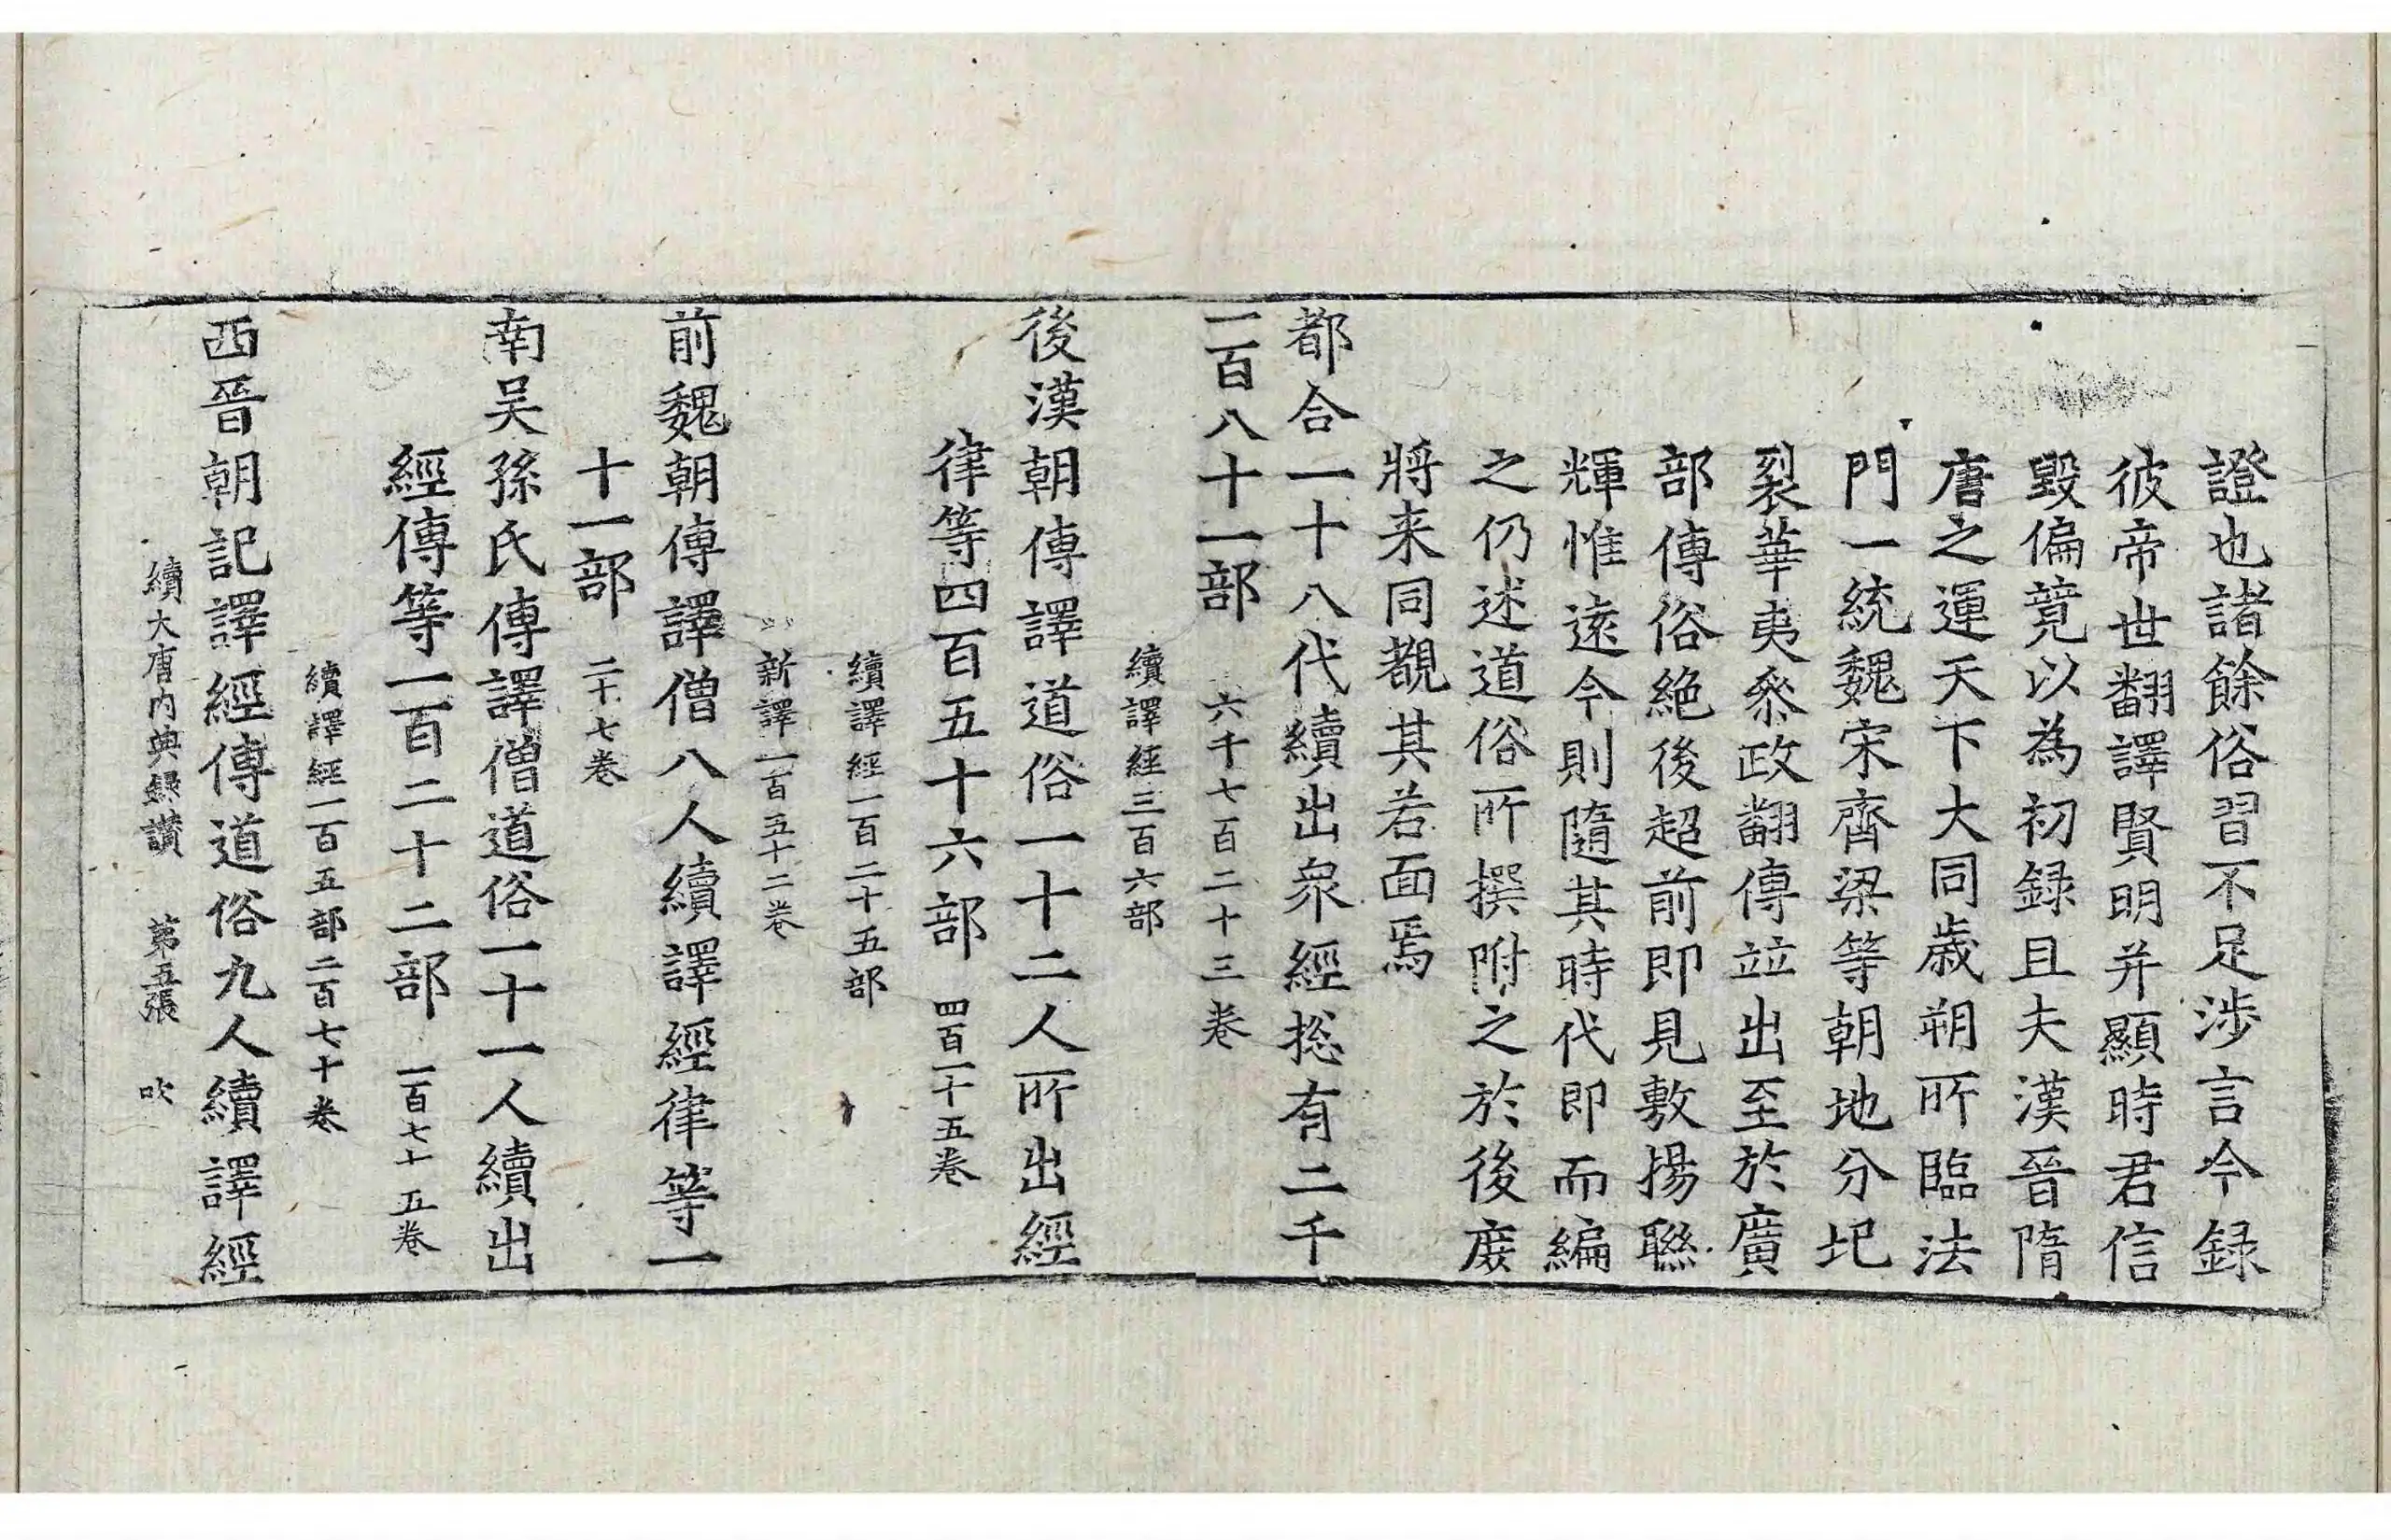 證也諸餘俗習不足涉言今録
彼帝世翻譯賢明并顯時君信
毀偏競以為初録且夫漢晉隋
唐之運天下大同歳朔所臨法
門一統魏宋齊梁等朝地分圯
裂華夷叅政翻傳竝出至於廣
部傳俗絶後超前即見敷揚聮
輝惟逺今則隨其時代即而編
之仍述道俗所撰附之於後庻
將来同覩其若面焉
都合一十八代續出衆經捴有二千
二百八十一部 六千七百二十三卷
續譯經三百六部
後漢朝傳譯道俗一十二人所出經
律等四百五十六部 四百一十五卷
續譯經一百二十五部
新譯一百五十二卷
前魏朝傳譯僧八人續譯經律等一
十一部 二十七卷
南吴孫氏傳譯僧道俗一十一人續出
經傳等一百二十二部 一百七十五卷
續譯經一百五部二百七十卷
西晉朝記譯經傳道俗九人續譯經
續大唐内典録讃 第五張 吹